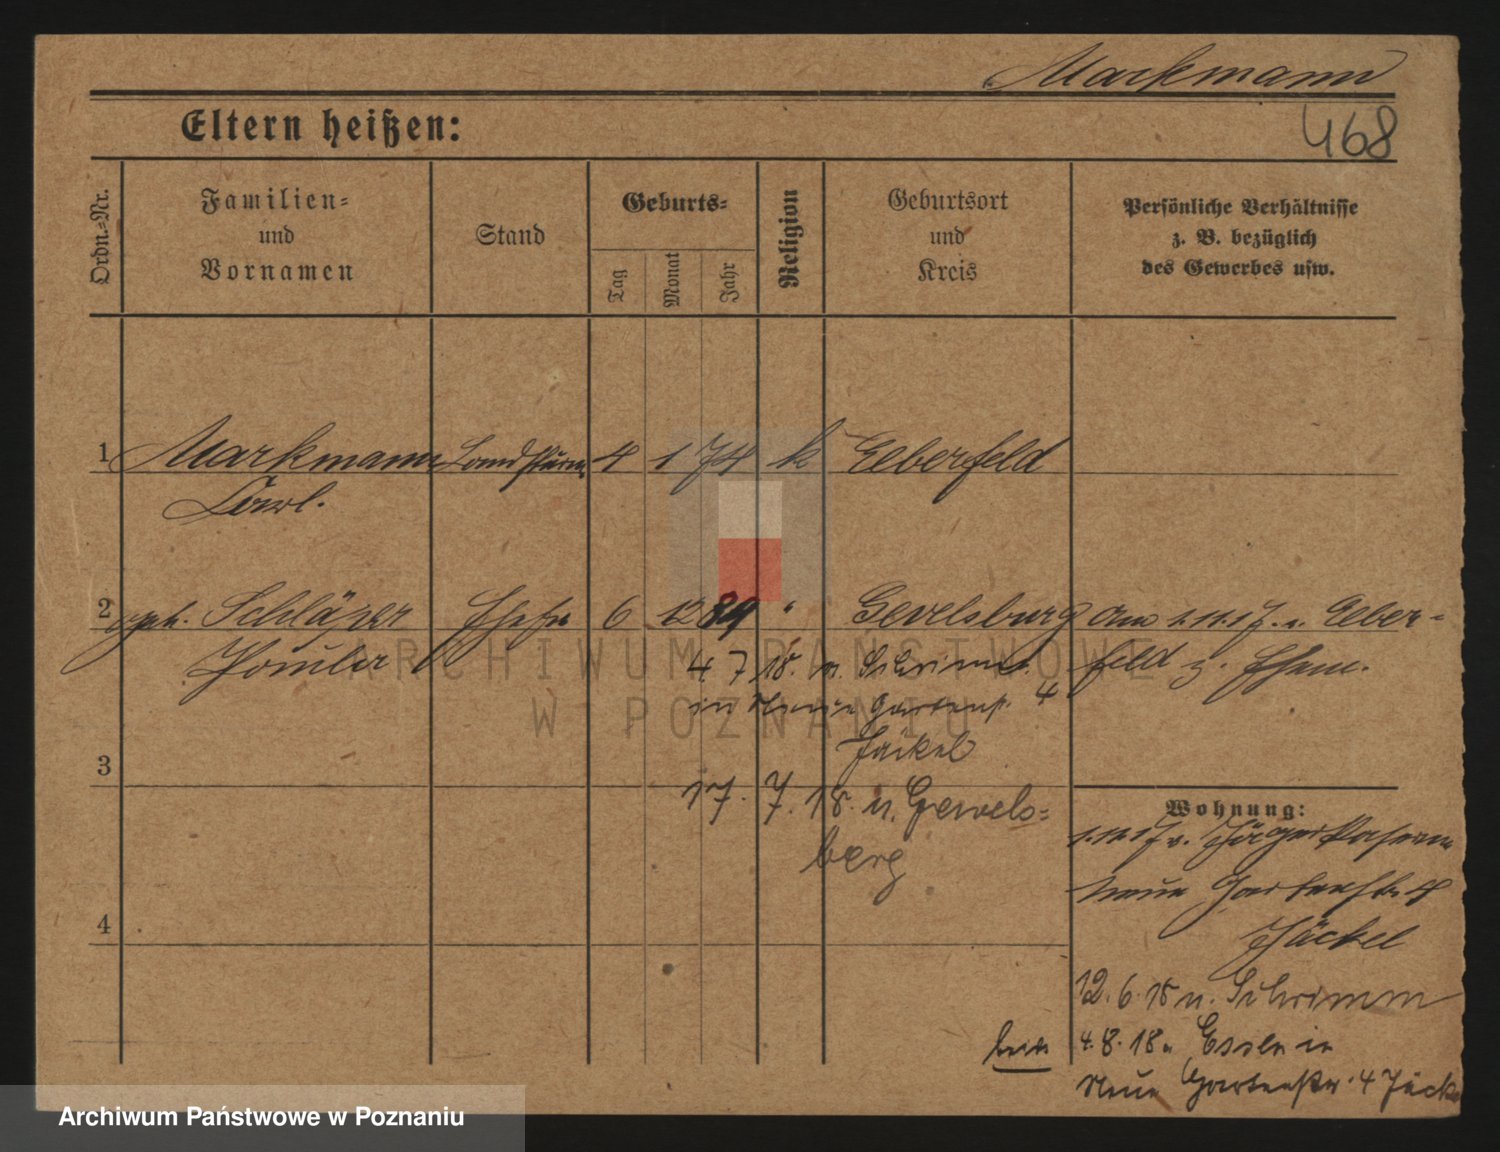 Markmann
468
Eltern heißen:
Ordn.-Nr.
Familien- und Vornamen
Stand
Geburts-
Tag
Monat
Jahr
Religion
Geburtsort und Kreis
Persönliche Verhältnisse
z. B. bezüglich
des Gewerbes usw.
1 Markmann Landsturm 4 1 74 k Elberfeld
Carl.
2 Schläper Ehefr 6 12 89 " Gevelsburg am 1.11.17. v. Elber-
Paula 4. 7 18. n. Schrimm. feld z. Ehem.
in Neue Gartenst. 4
Jäckel
3
17. 7. 18. n. Gevels-
berg
Wohnung:
1.11.17 v. Jäger Kasern
Neue Gartenstr. 4
4
Jäckel
12. 6. 18 n. Schrimm
4. 8. 18 Essen in
Neue Gartenstr. 4 Jäck
ARCHIWUM PAŃSTWOWE
W POZNANIU
Archiwum Państwowe w Poznaniu